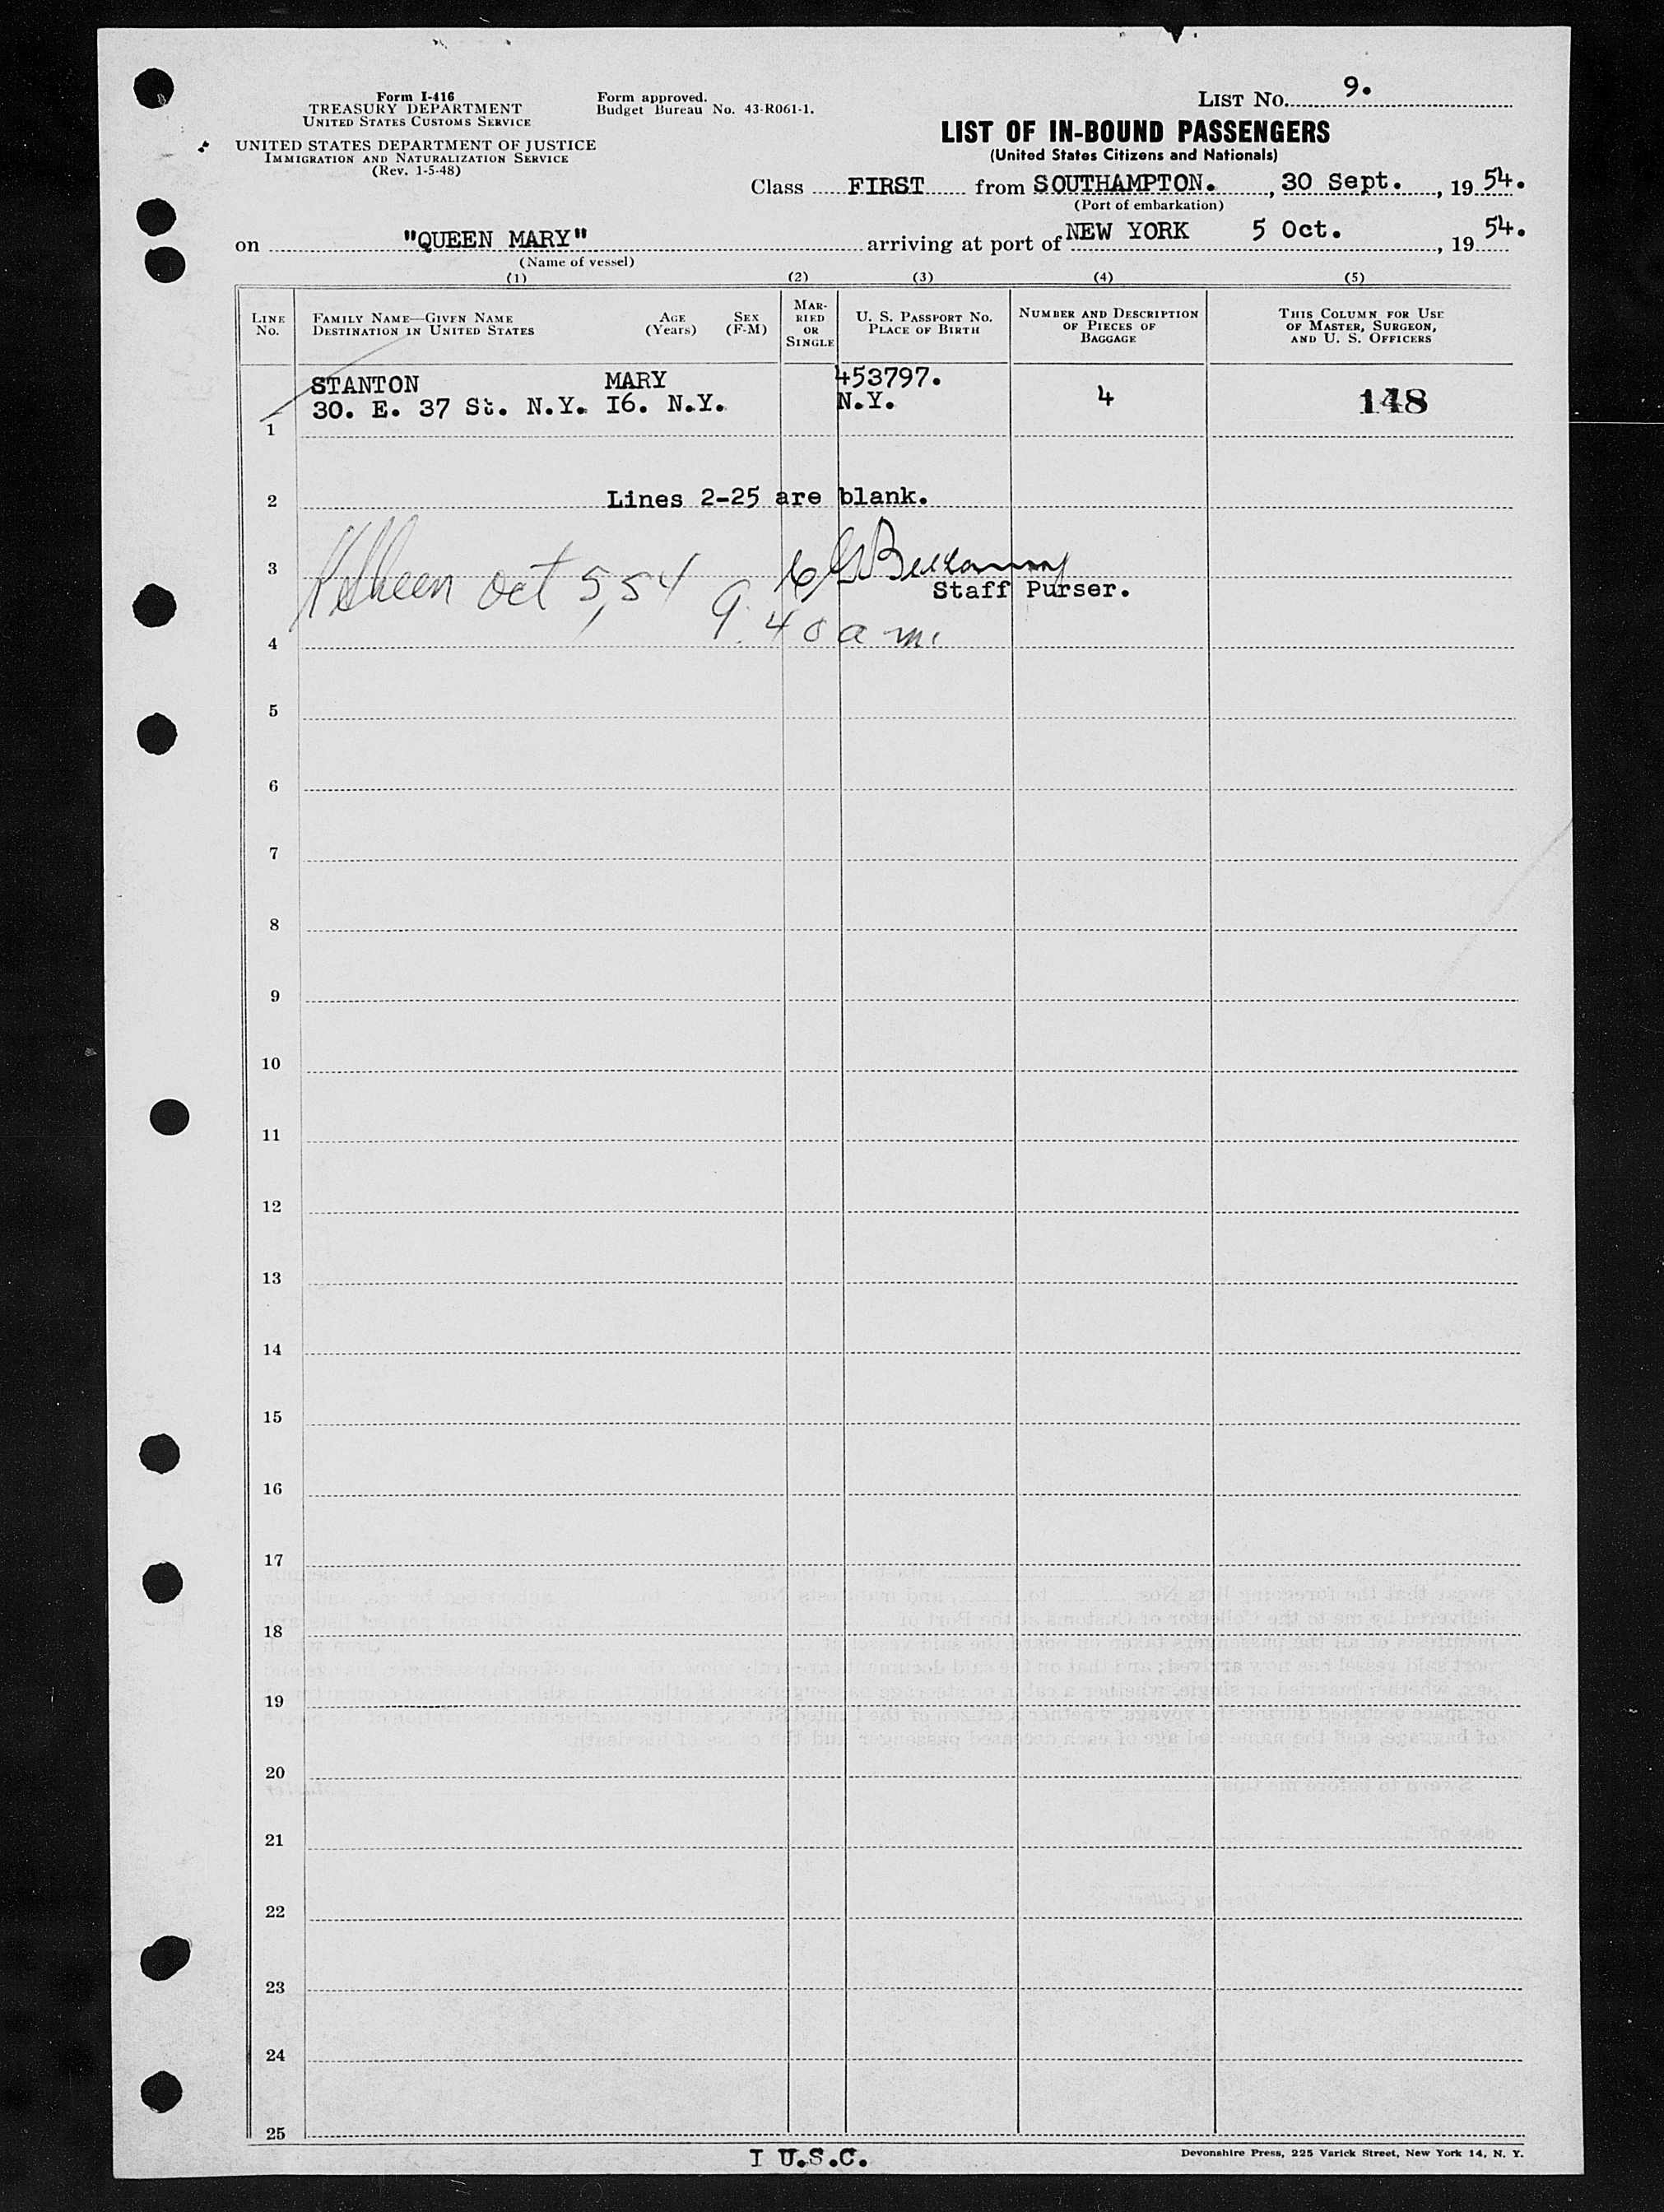 Form I-416
TREASURY DEPARTMENT
UNITED STATES CUSTOMS SERVICE
UNITED STATES DEPARTMENT OF JUSTICE
IMMIGRATION AND NATURALIZATION SERVICE
(Rev. 1-5-48)
Form approved.
Budget Bureau No. 43-R061-1.
LIST No. 9.
LIST OF IN-BOUND PASSENGERS
(United States Citizens and Nationals)
Class FIRST from SOUTHAMPTON. , 30 Sept. , 19 54.
(Port of embarkation)
on "QUEEN MARY" arriving at port of NEW YORK 5 Oct. , 19 54.
(Name of vessel)
(1) (2) (3) (4) (5)
LINE No.
FAMILY NAME—GIVEN NAME
DESTINATION IN UNITED STATES
AGE (Years)
SEX (F-M)
MARRIED OR SINGLE
U. S. PASSPORT No.
PLACE OF BIRTH
NUMBER AND DESCRIPTION
OF PIECES OF
BAGGAGE
THIS COLUMN FOR USE
OF MASTER, SURGEON,
AND U. S. OFFICERS
STANTON MARY 453797.
30. E. 37 St. N.Y. I6. N.Y. N.Y. 4 148
1
2 Lines 2-25 are blank.
3 Oct 5, 54
Staff Purser.
9.40 a m.
4
5
6
7
8
9
10
11
12
13
14
15
16
17
18
19
20
21
22
23
24
25
I U.S.C.
Devonshire Press, 225 Varick Street, New York 14, N. Y.